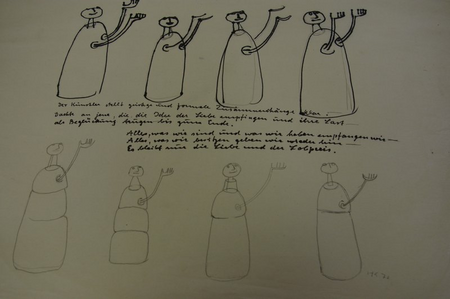 Der Künstler stellt geistige und formale Zusammenhänge her.
Dachte an jene, die die Idee der Liebe empfingen und ihre Last
als Beglückung trugen bis zum Ende.
Alles, was wir sind und was wir haben empfangen wir —
Alles, was wir besitzen geben wir wieder hin —
Es bleibt nur die Liebe und der Lobpreis.